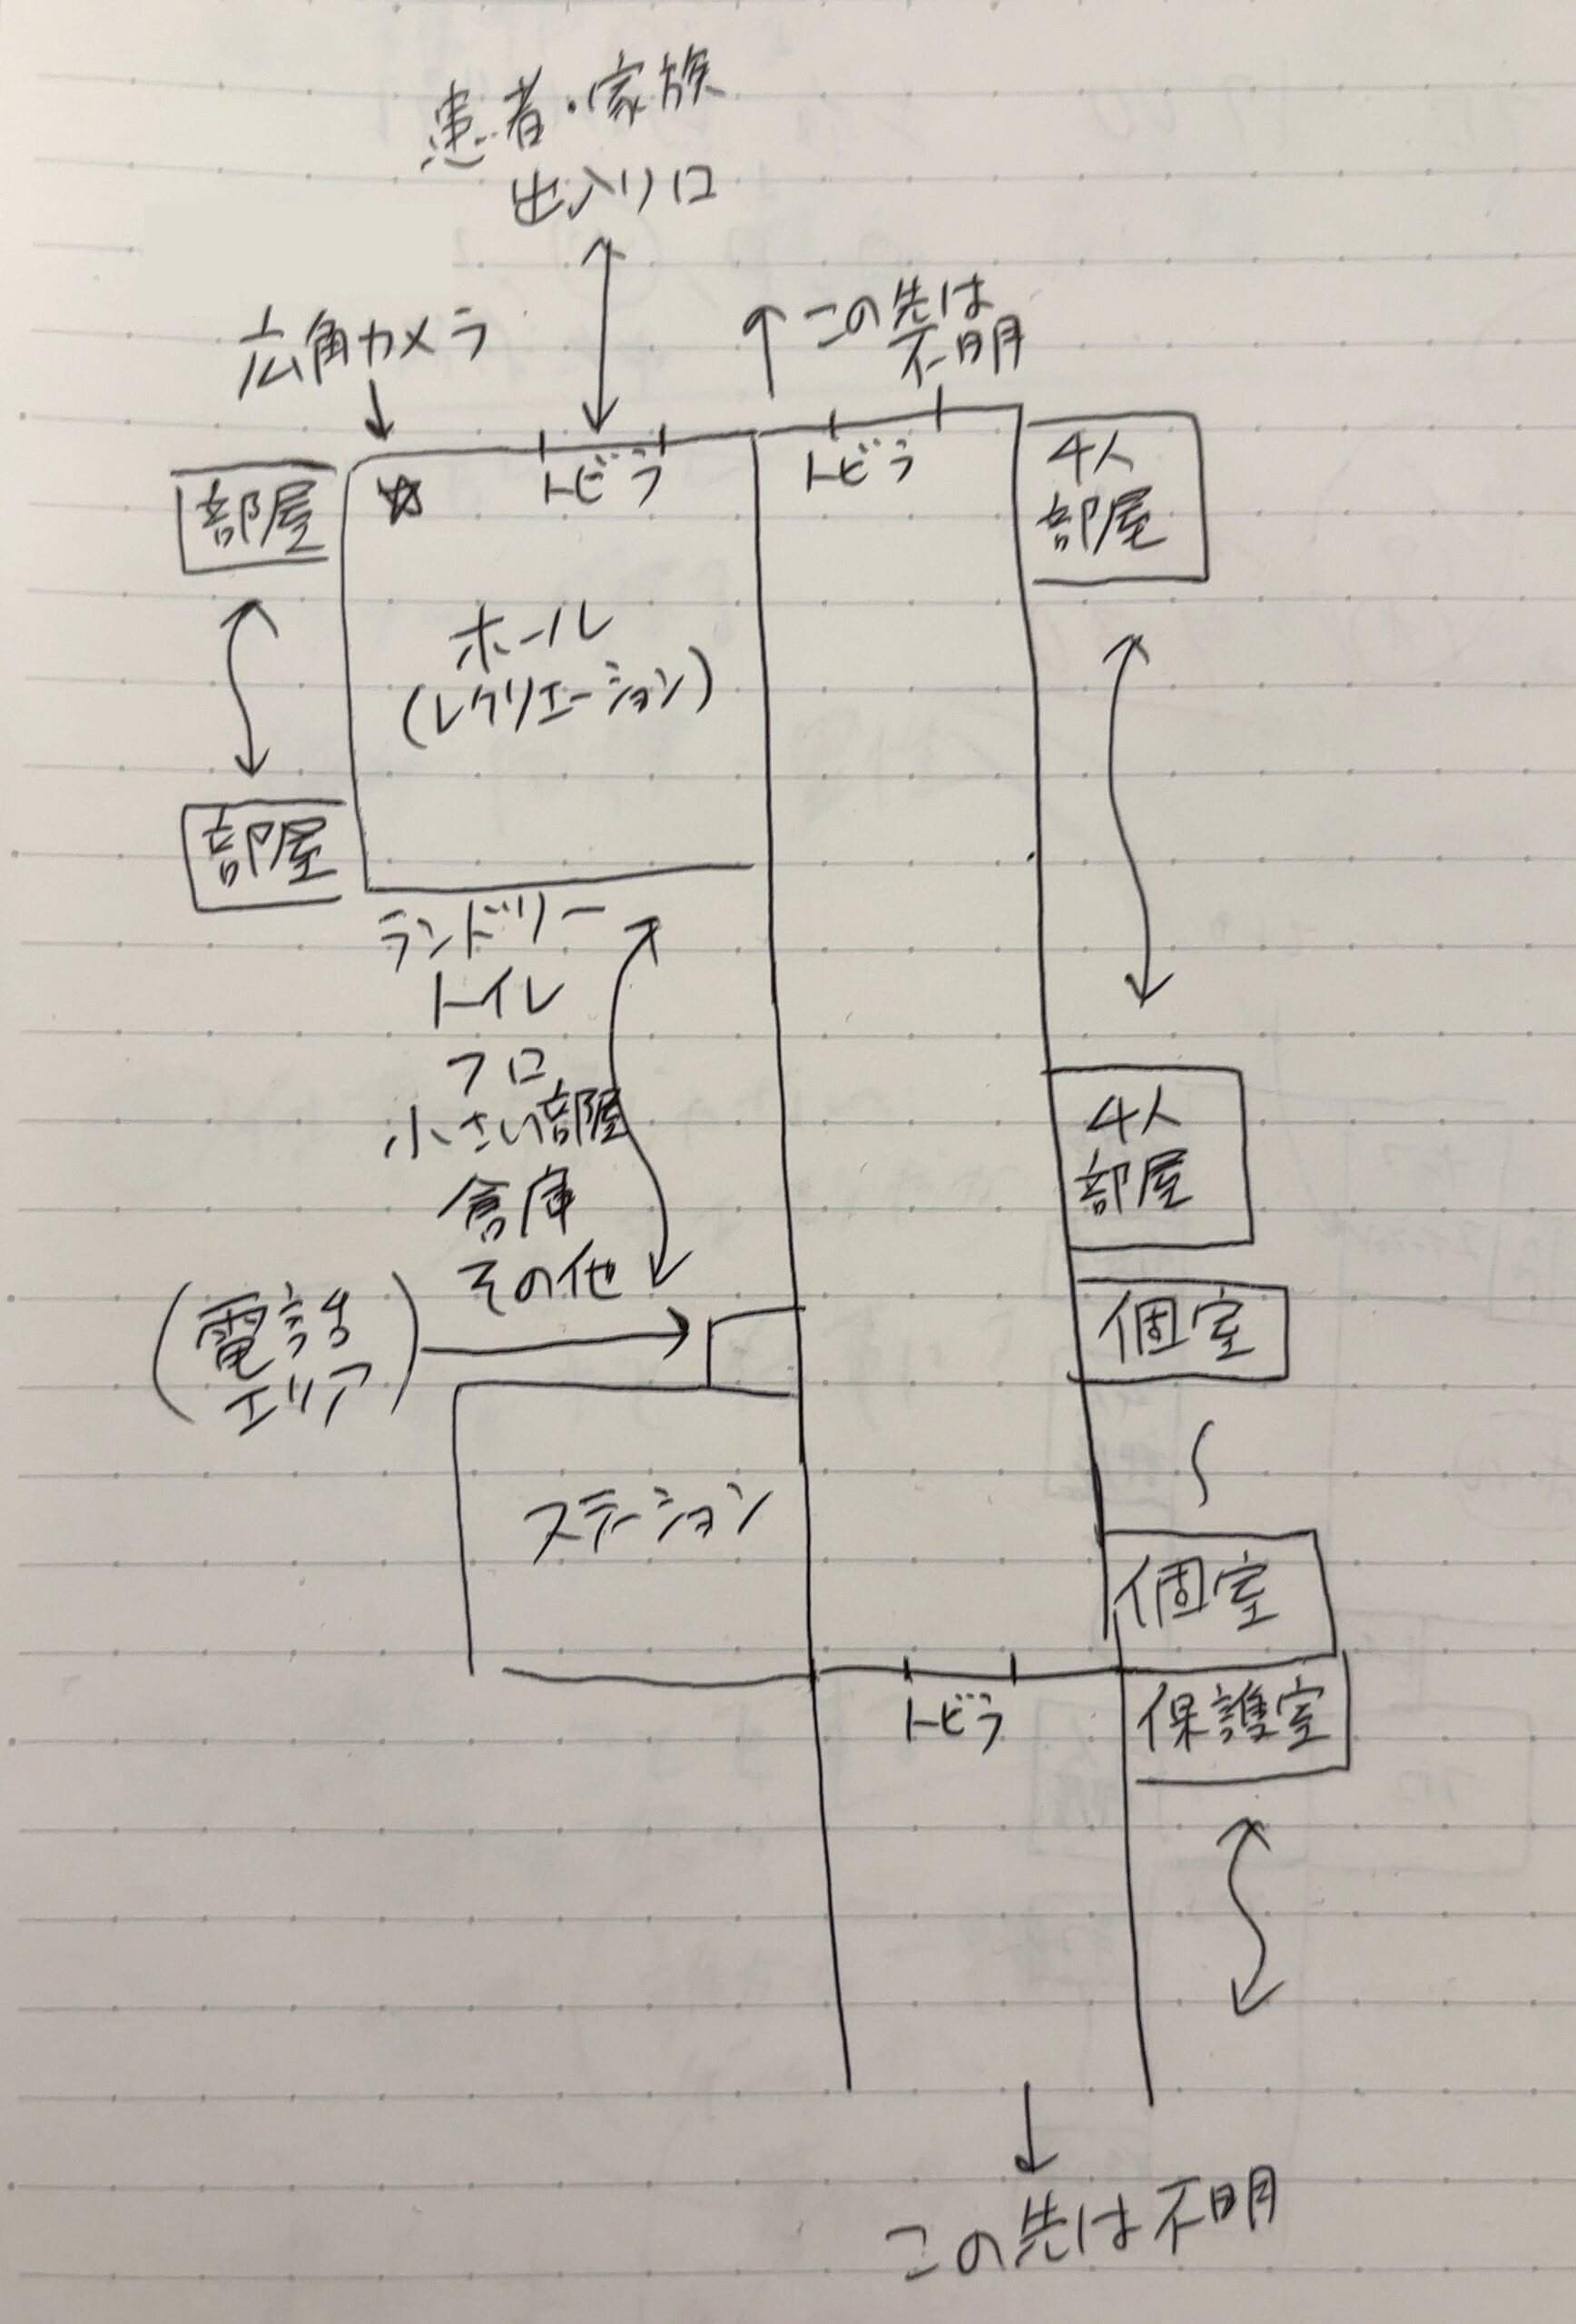 患者・家族
出入り口
広角カメラ
この先は
不明
部屋
トビラ
トビラ
4人
部屋
ホール
(レクリエーション)
部屋
ランドリー
トイレ
フロ
小さい部屋
倉庫
その他
4人
部屋
(電話
エリア)
個室
ステーション
個室
トビラ
保護室
この先は不明